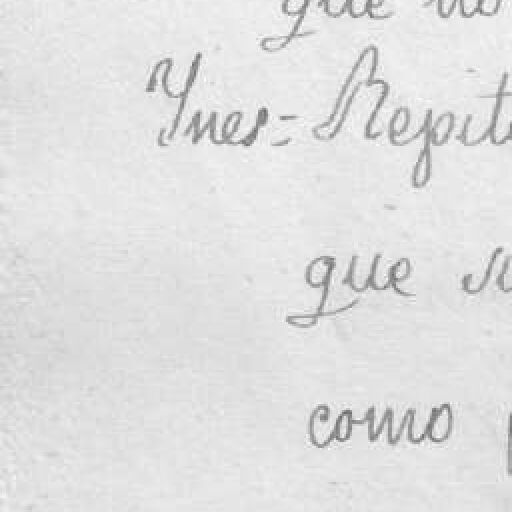 que no
Ynes= Repit
que
como